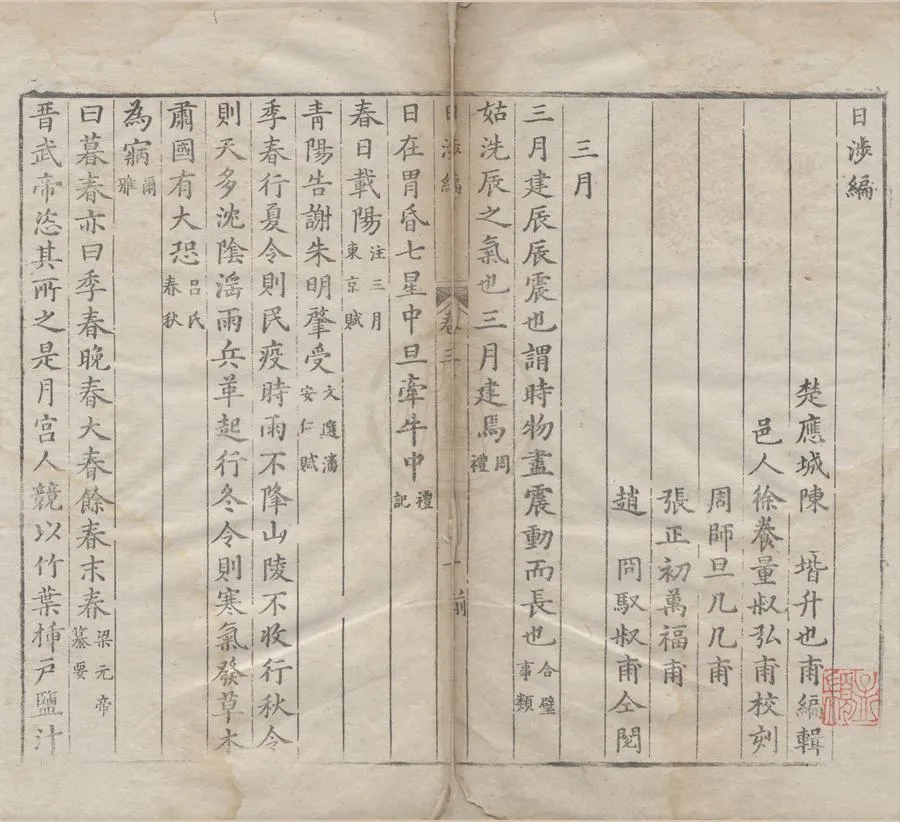 日涉編
楚應城陳 堦升也甫編輯
邑人徐養量叔弘甫校刻
周師旦几几甫
張正初萬福甫
趙 岡馭叔甫仝閱
三月
三月建辰辰震也謂時物盡震動而長也合璧事類
姑洗辰之氣也三月建焉周禮
日涉編 卷三 一 前
日在胃昏七星中旦牽牛中禮記
春日載陽注三月東京賦
青陽告謝朱明肇受文選潘安仁賦
季春行夏令則民疫時雨不降山陵不收行秋令
則天多沈陰滛雨兵革起行冬令則寒氣發草木
肅國有大恐呂氏春秋
為寎爾雅
曰暮春亦曰季春晚春大春餘春末春梁元帝纂要
晉武帝恣其所之是月宮人競以竹葉插戶鹽汁